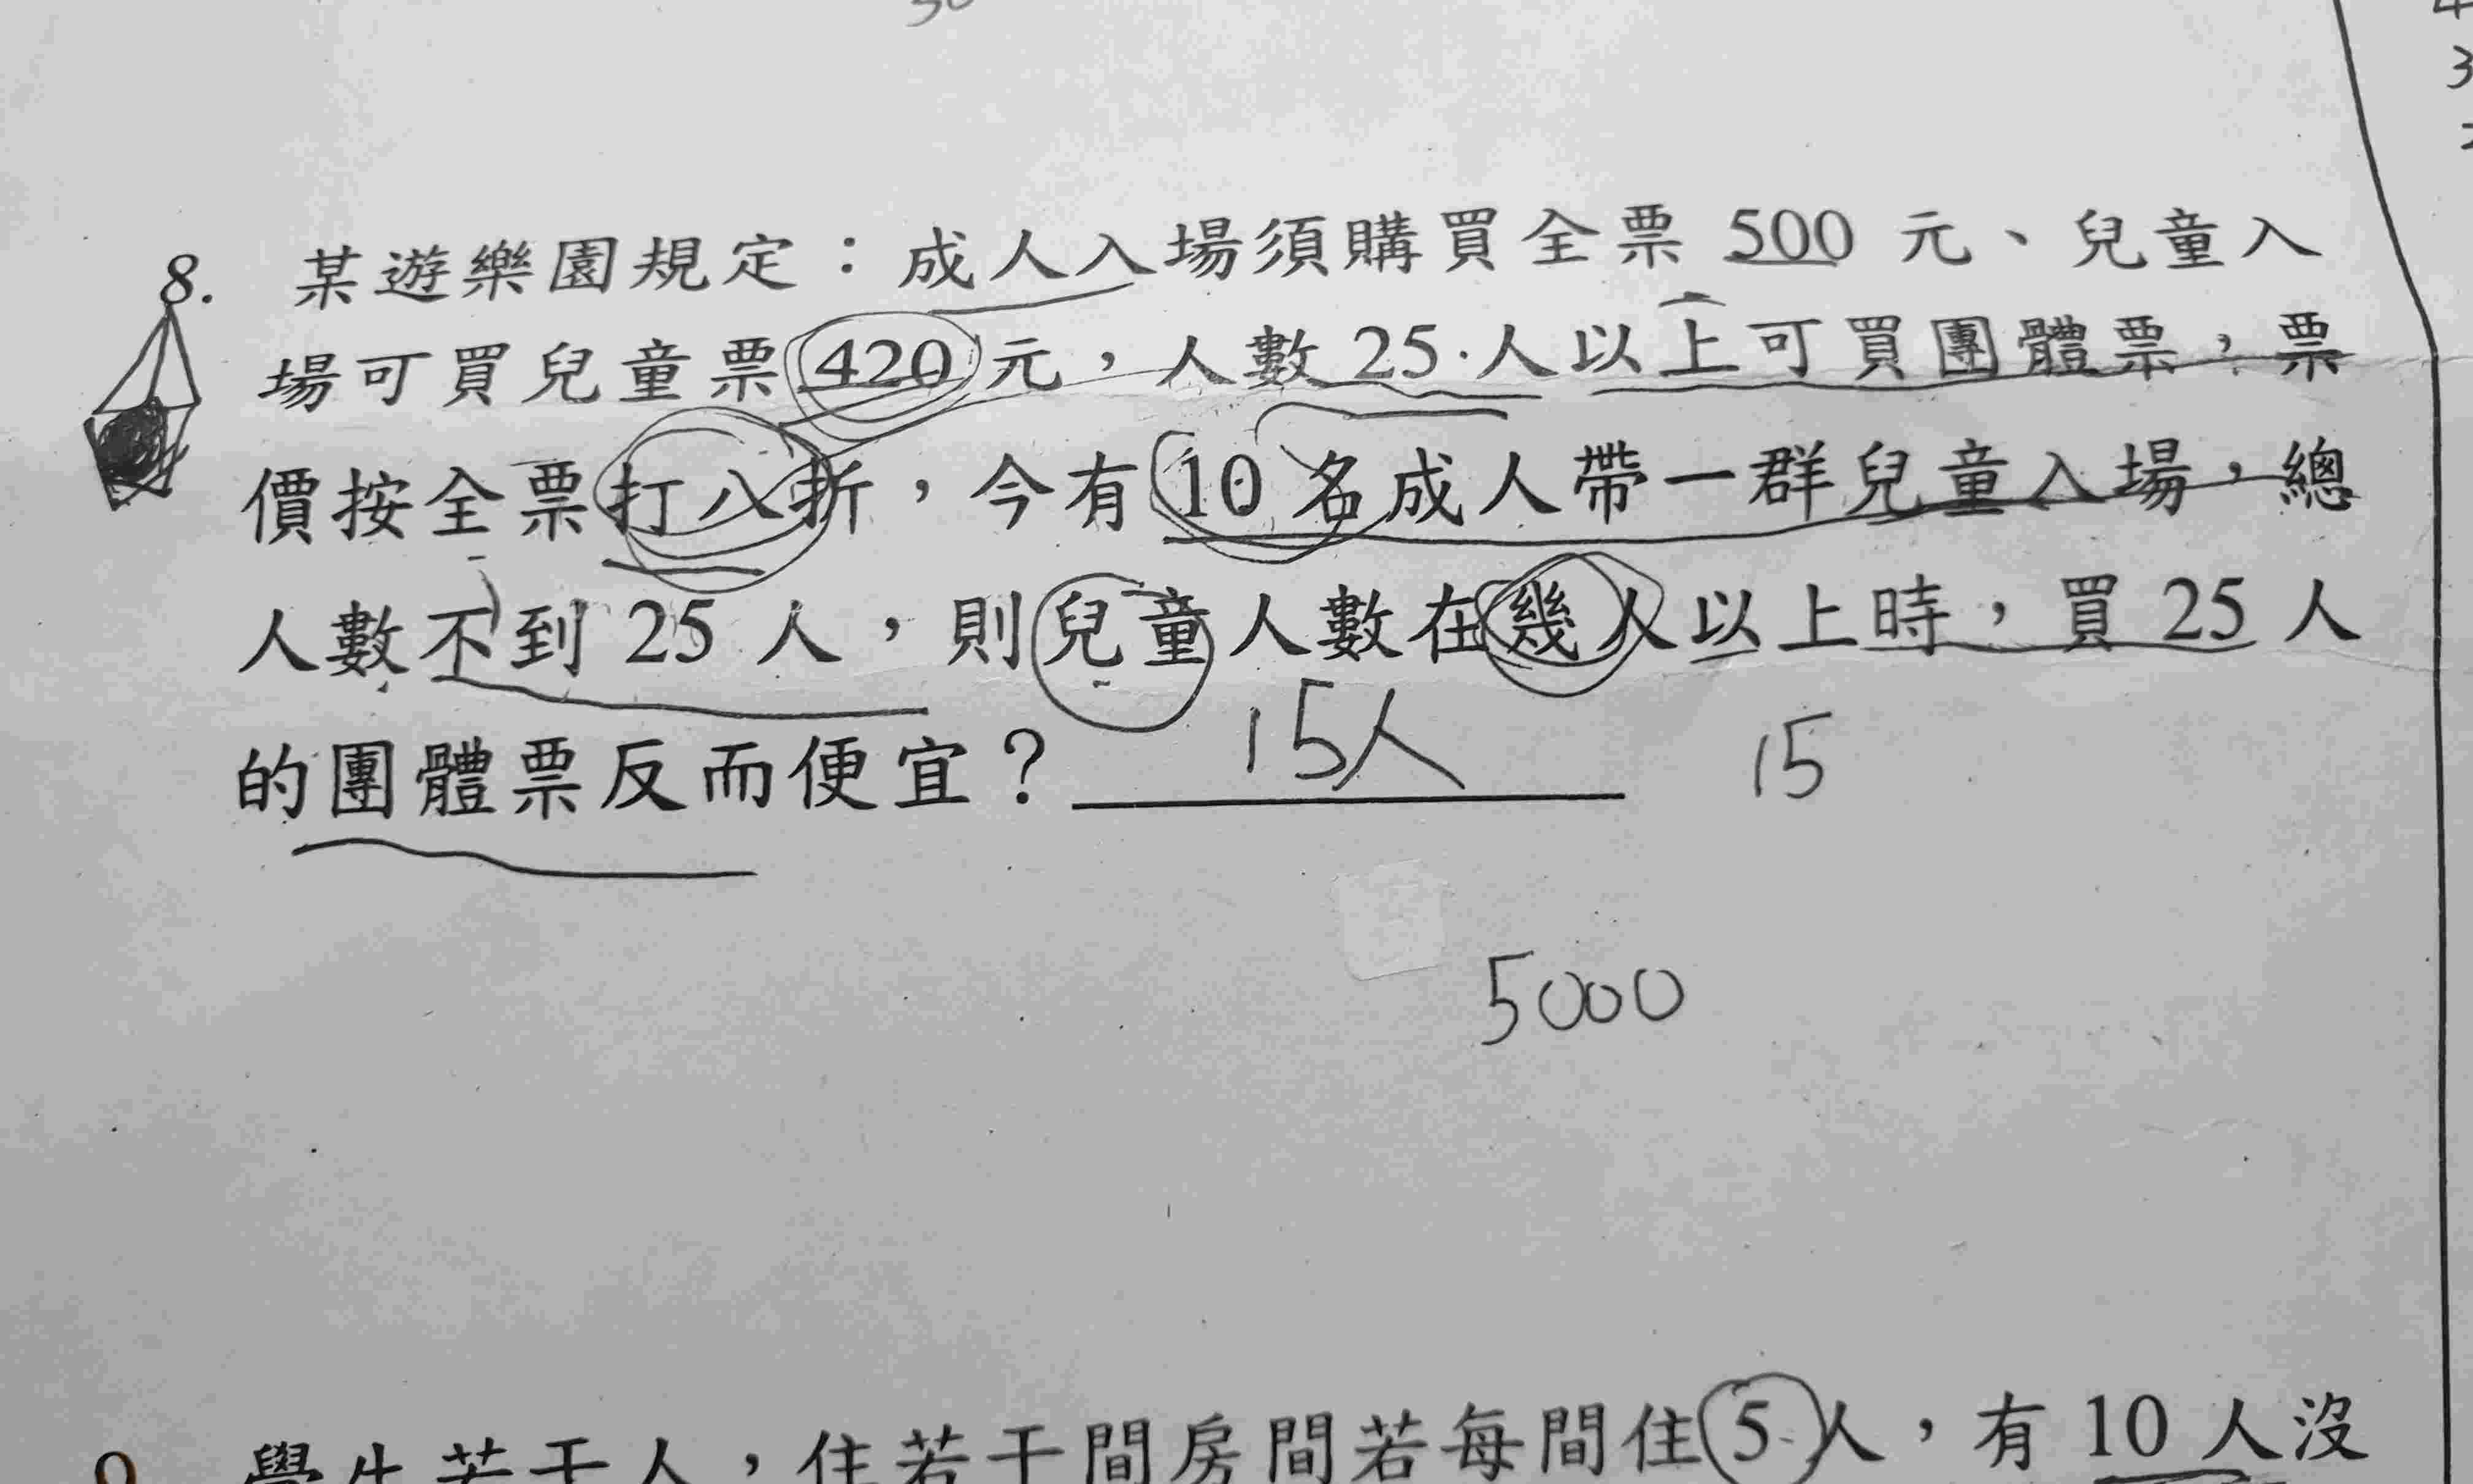 8. 某遊樂園規定：成人入場須購買全票 500 元、兒童入
場可買兒童票 420 元，人數 25 人以上可買團體票，票
價按全票打八折，今有 10 名成人帶一群兒童入場，總
人數不到 25 人，則兒童人數在幾人以上時，買 25 人
的團體票反而便宜？ 15人 15
5000
學生若干人，住若干間房間若每間住 5 人，有 10 人沒